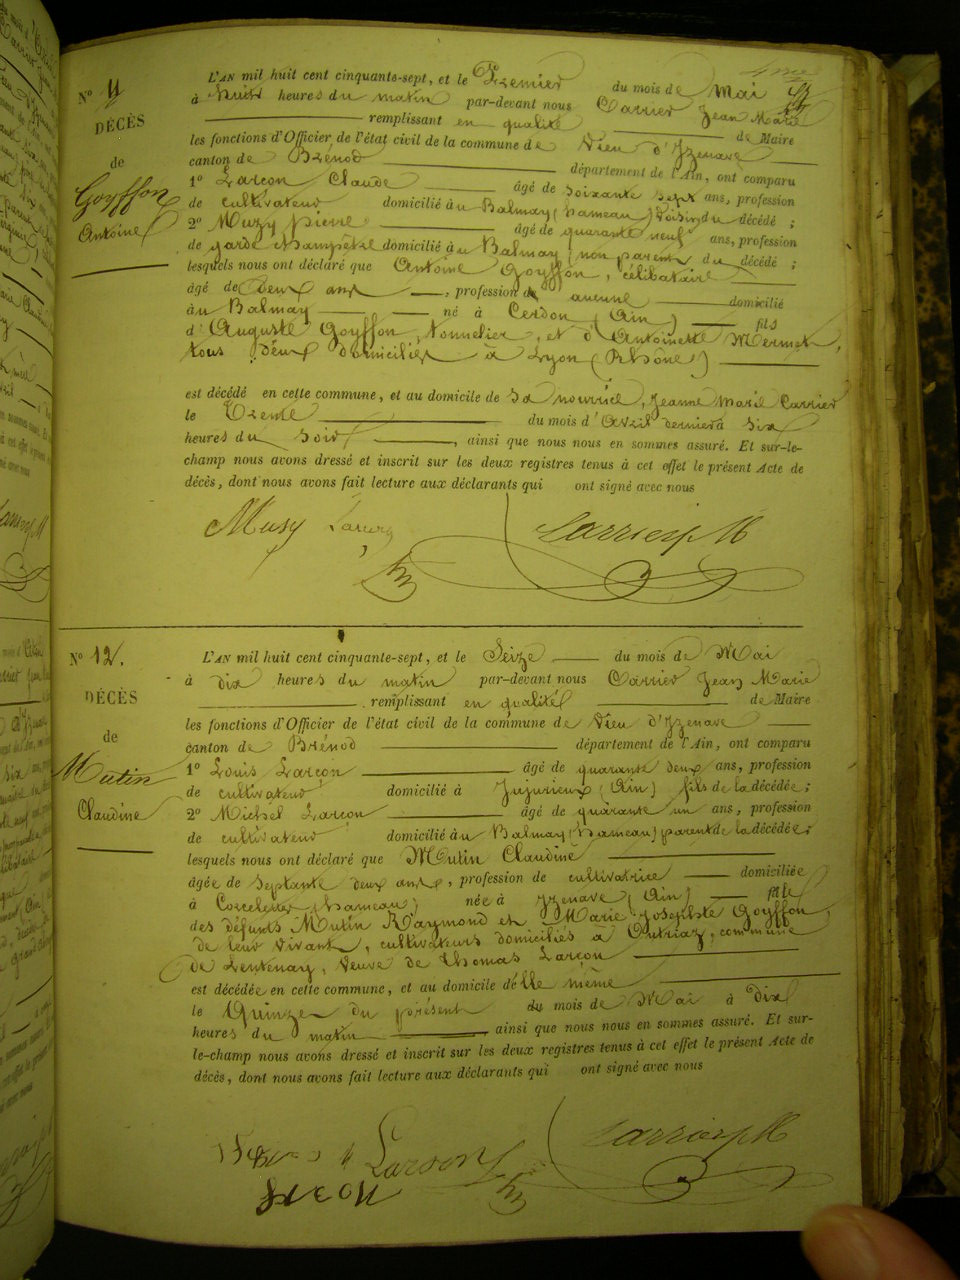 N° 11
DÉCÈS
de
Goyffon
Antoine
L'AN mil huit cent cinquante-sept, et le Premier du mois de Mai
à huit heures du matin par-devant nous Carrier Jean Marie
remplissant en qualité de Maire
les fonctions d'Officier de l'état civil de la commune de Vieu d'Izenave
canton de Brénod département de l'Ain, ont comparu
1° Larçon Claude âgé de soixante sept ans, profession
de cultivateur domicilié au Balmay (hameau) voisin du décédé ;
2° Muzy pierre âgé de quarante neuf ans, profession
de garde champêtre domicilié au Balmay (non parent du décédé ;
lesquels nous ont déclaré que Antoine Goyffon, célibataire
âgé de deux ans, profession de aucune domicilié
au Balmay né à Cerdon (Ain) fils
d'Auguste Goyffon, tonnelier, et d'Antoinette Mermet,
tous deux domiciliés à Lyon (Rhône)
est décédé en cette commune, et au domicile de sa nourrice, Jeanne Marie Carrier
le Trente du mois d'Avril dernier à six
heures du soir, ainsi que nous nous en sommes assuré. Et sur-le-
champ nous avons dressé et inscrit sur les deux registres tenus à cet effet le présent Acte de
décès, dont nous avons fait lecture aux déclarants qui ont signé avec nous
Musy Carrier J M
N° 12.
DÉCÈS
de
Mutin
Claudine
L'AN mil huit cent cinquante-sept, et le Seize du mois de Mai
à dix heures du matin par-devant nous Carrier Jean Marie
remplissant en qualité de Maire
les fonctions d'Officier de l'état civil de la commune de Vieu d'Izenave
canton de Brénod département de l'Ain, ont comparu
1° Louis Larçon âgé de quarante deux ans, profession
de cultivateur domicilié à Jujurieux (Ain) fils de la décédée ;
2° Michel Larçon âgé de quarante un ans, profession
de cultivateur domicilié au Balmay (hameau) parent de la décédée ;
lesquels nous ont déclaré que Mutin Claudine
âgée de septante deux ans, profession de cultivatrice domiciliée
à Corcelette (hameau) née à Izenave (Ain) fille
des défunts Mutin Raymond et Marie Josephte Goyffon,
de leur vivant, cultivateurs domiciliés à Outriaz, commune
de Lentenay, veuve de Thomas Larçon
est décédée en cette commune, et au domicile d'elle même
le Quinze du présent du mois de Mai à Dix
heures du matin ainsi que nous nous en sommes assuré. Et sur-
le-champ nous avons dressé et inscrit sur les deux registres tenus à cet effet le présent Acte de
décès, dont nous avons fait lecture aux déclarants qui ont signé avec nous
Larçon Carrier J M